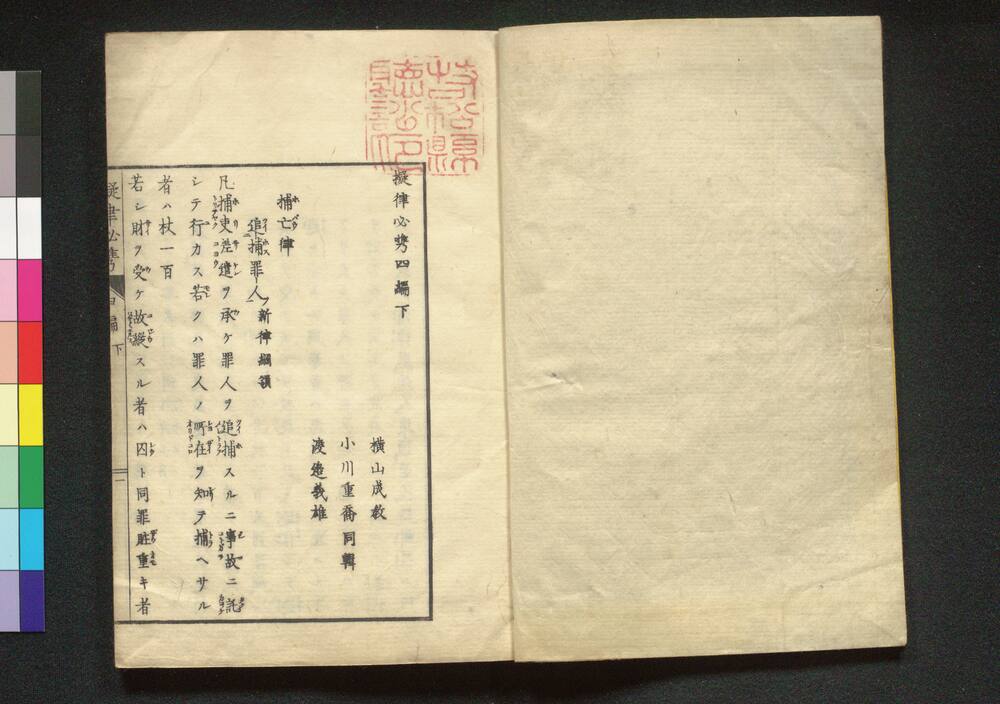 擬律必携四編下
横山成教
小川重喬同輯
渡邉義雄
捕亡律
追捕罪人 新律綱領
凡捕吏差遣ヲ承ケ罪人ヲ追捕スルニ事故ニ託
シテ行カス若クハ罪人ノ所在ヲ知テ捕ヘサル
者ハ杖一百
若シ財ヲ受ケ故縦スル者ハ囚ト同罪賍重キ者
擬律必携 四編下 一